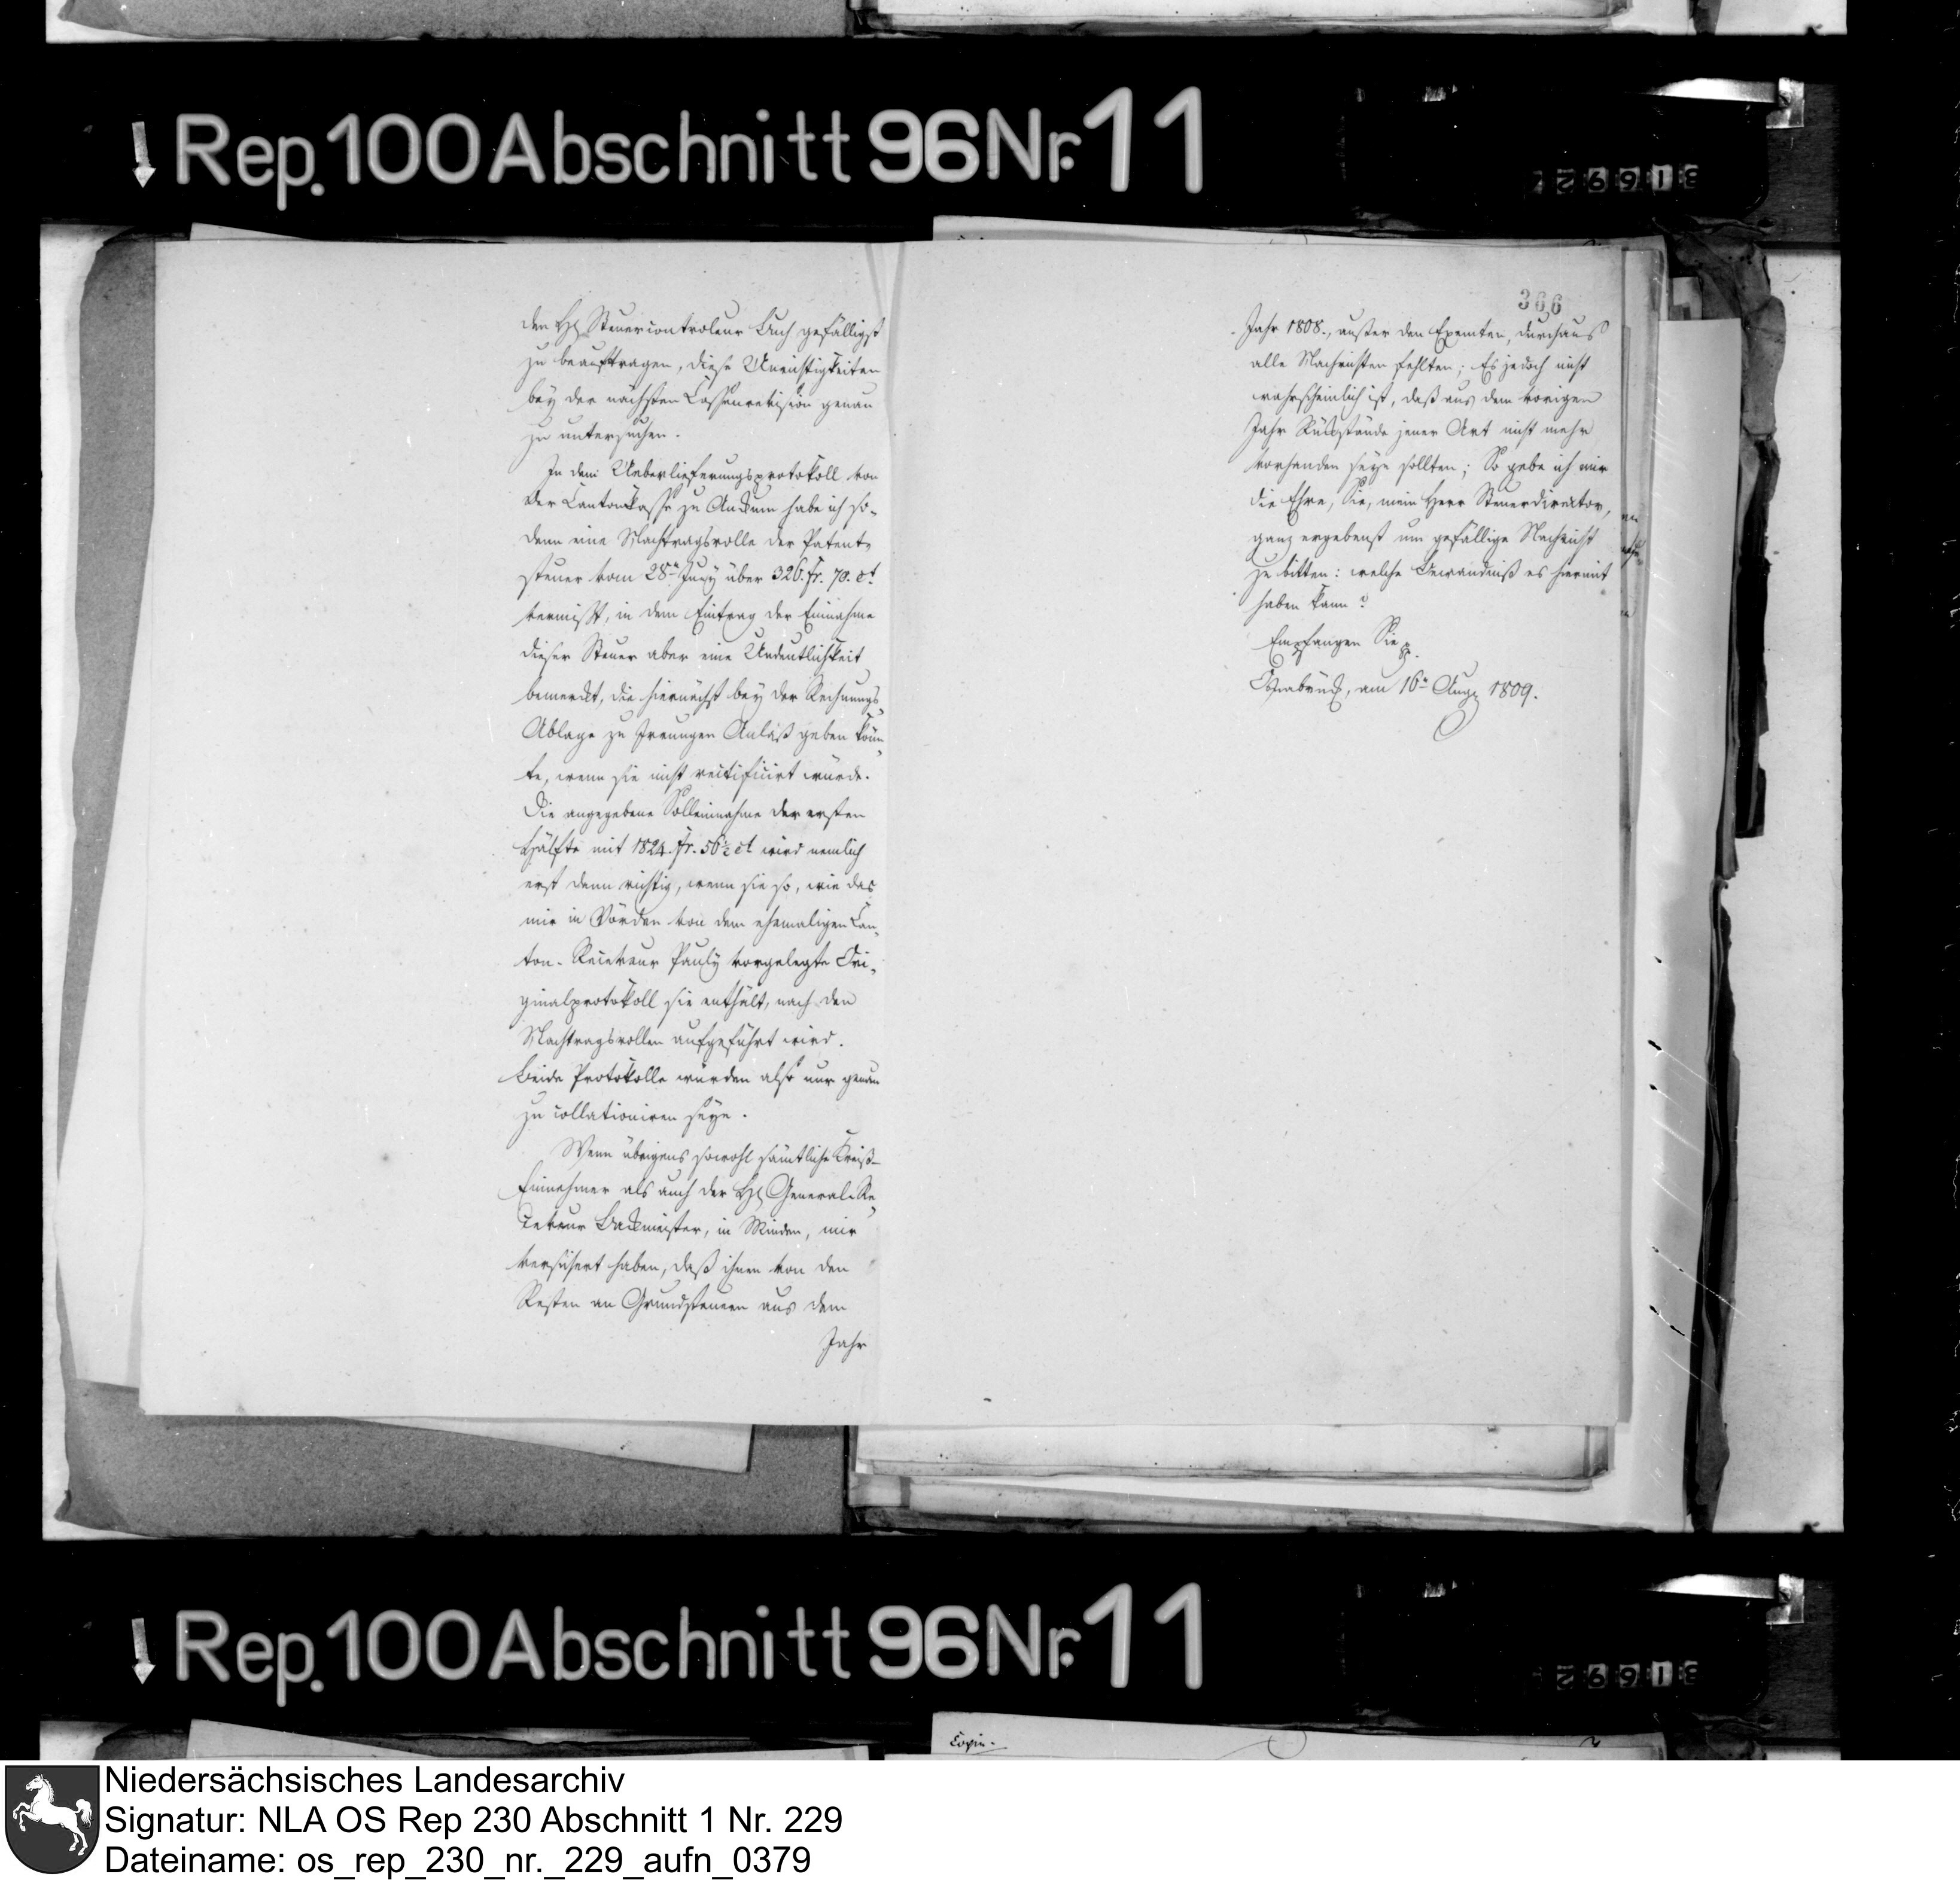 Rep. 100 Abschnitt 96 Nr. 11
den H Steuercontroleur Buch gefälligst
zu beauftragen, diese Unrichtigkeiten
bey der nächsten Cassenrevision genau
zu untersuchen.
In dem Ueberlieferungsprotokoll von
der Cantonkasse zu Ankum habe ich so-
dann eine Nachtragsrolle der Patent-
steuer vom 28n Juny über 326. fr. 70. ct.
vermißt, in dem Eintrag der Einnahme
dieser Steuer aber eine Undeutlichkeit
bemerkt, die hiernächst bey der Rechnungs-
Ablage zu Irrungen Anlaß geben könn-
te, wenn sie nicht rectificirt würde.
Die angegebene Solleinnahme der ersten
Hälfte mit 1824. fr. 56½ ct wird nemlich
erst dann richtig, wenn sie so, wie das
mir in Vörden von dem ehemaligen Can-
ton-Receveur Pauly vorgelegte Ori-
ginalprotokoll sie enthält, nach den
Nachtragsrollen aufgeführt wird.
Beide Protokolle würden also nur genau
zu collationiren seyn.
Wenn übrigens sowohl sämtliche Kreiß-
Einnehmer als auch der H General-Re-
ceveur Backmeister, in Minden, mir
versichert haben, daß ihnen von den
Resten an Grundsteuern aus dem
Jahr
366
Jahr 1808., außer den Exemten, durchaus
alle Nachrichten fehlten; Es jedoch nicht
wahrscheinlich ist, daß aus dem vorigen
Jahr Rückstände jener Art nicht mehr
vorhanden seyn sollten; So gebe ich mir
die Ehre, Sie, mein Herr Steuerdirector,
ganz ergebenst um gefällige Nachricht
zu bitten: welche Bewandniß es hiermit
haben kann?
Empfangen Sie
Osnabrück, am 16n Aug 1809.
Rep. 100 Abschnitt 96 Nr. 11
Copia.
Niedersächsisches Landesarchiv
Signatur: NLA OS Rep 230 Abschnitt 1 Nr. 229
Dateiname: os_rep_230_nr._229_aufn_0379